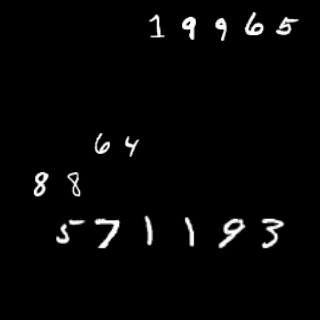 19965
64
88
571193